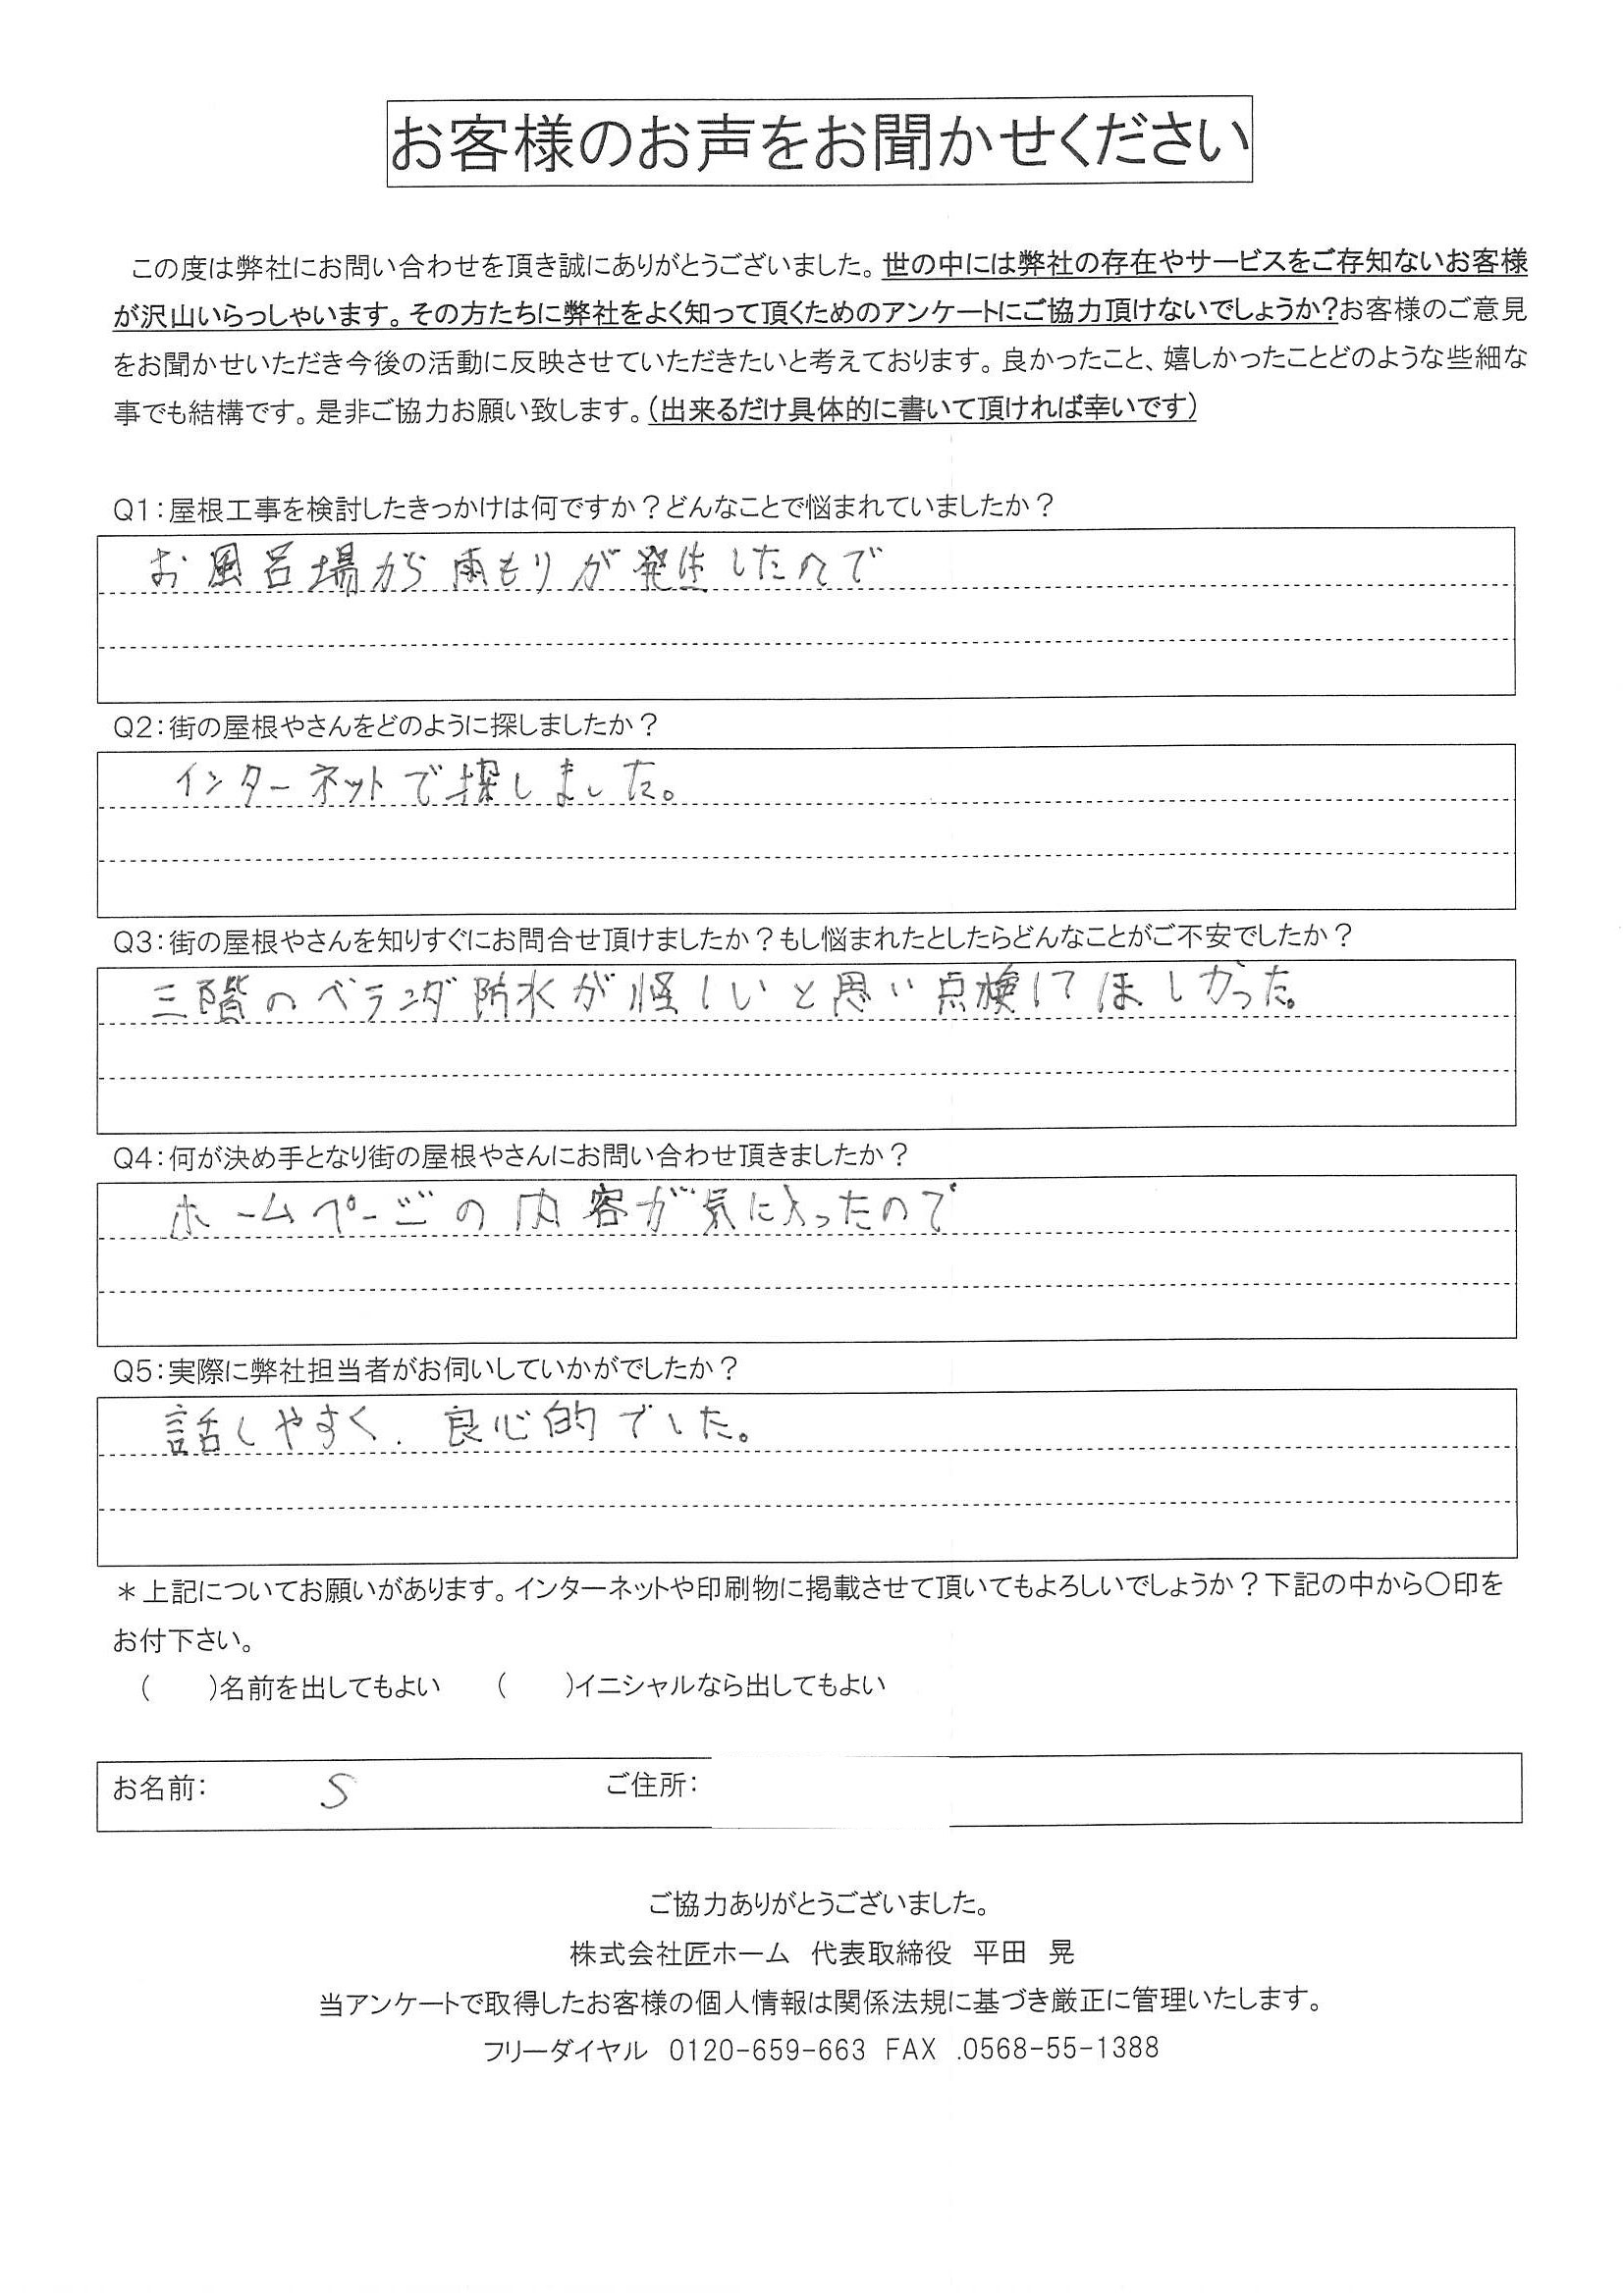 お客様のお声をお聞かせください
この度は弊社にお問い合わせを頂き誠にありがとうございました。世の中には弊社の存在やサービスをご存知ないお客様
が沢山いらっしゃいます。その方たちに弊社をよく知って頂くためのアンケートにご協力頂けないでしょうか?お客様のご意見
をお聞かせいただき今後の活動に反映させていただきたいと考えております。良かったこと、嬉しかったことどのような些細な
事でも結構です。是非ご協力お願い致します。(出来るだけ具体的に書いて頂ければ幸いです)
Q1:屋根工事を検討したきっかけは何ですか?どんなことで悩まれていましたか?
お風呂場から雨もりが発生したので
Q2:街の屋根やさんをどのように探しましたか?
インターネットで探しました。
Q3:街の屋根やさんを知りすぐにお問合せ頂けましたか?もし悩まれたとしたらどんなことがご不安でしたか?
三階のベランダ防水が怪しいと思い点検してほしかった。
Q4:何が決め手となり街の屋根やさんにお問い合わせ頂きましたか?
ホームページの内容が気に入ったので
Q5:実際に弊社担当者がお伺いしていかがでしたか?
話しやすく、良心的でした。
＊上記についてお願いがあります。インターネットや印刷物に掲載させて頂いてもよろしいでしょうか?下記の中から〇印を
お付下さい。
(　　)名前を出してもよい　　(　　)イニシャルなら出してもよい
お名前:　S　ご住所:
ご協力ありがとうございました。
株式会社匠ホーム　代表取締役　平田　晃
当アンケートで取得したお客様の個人情報は関係法規に基づき厳正に管理いたします。
フリーダイヤル　0120-659-663 FAX .0568-55-1388